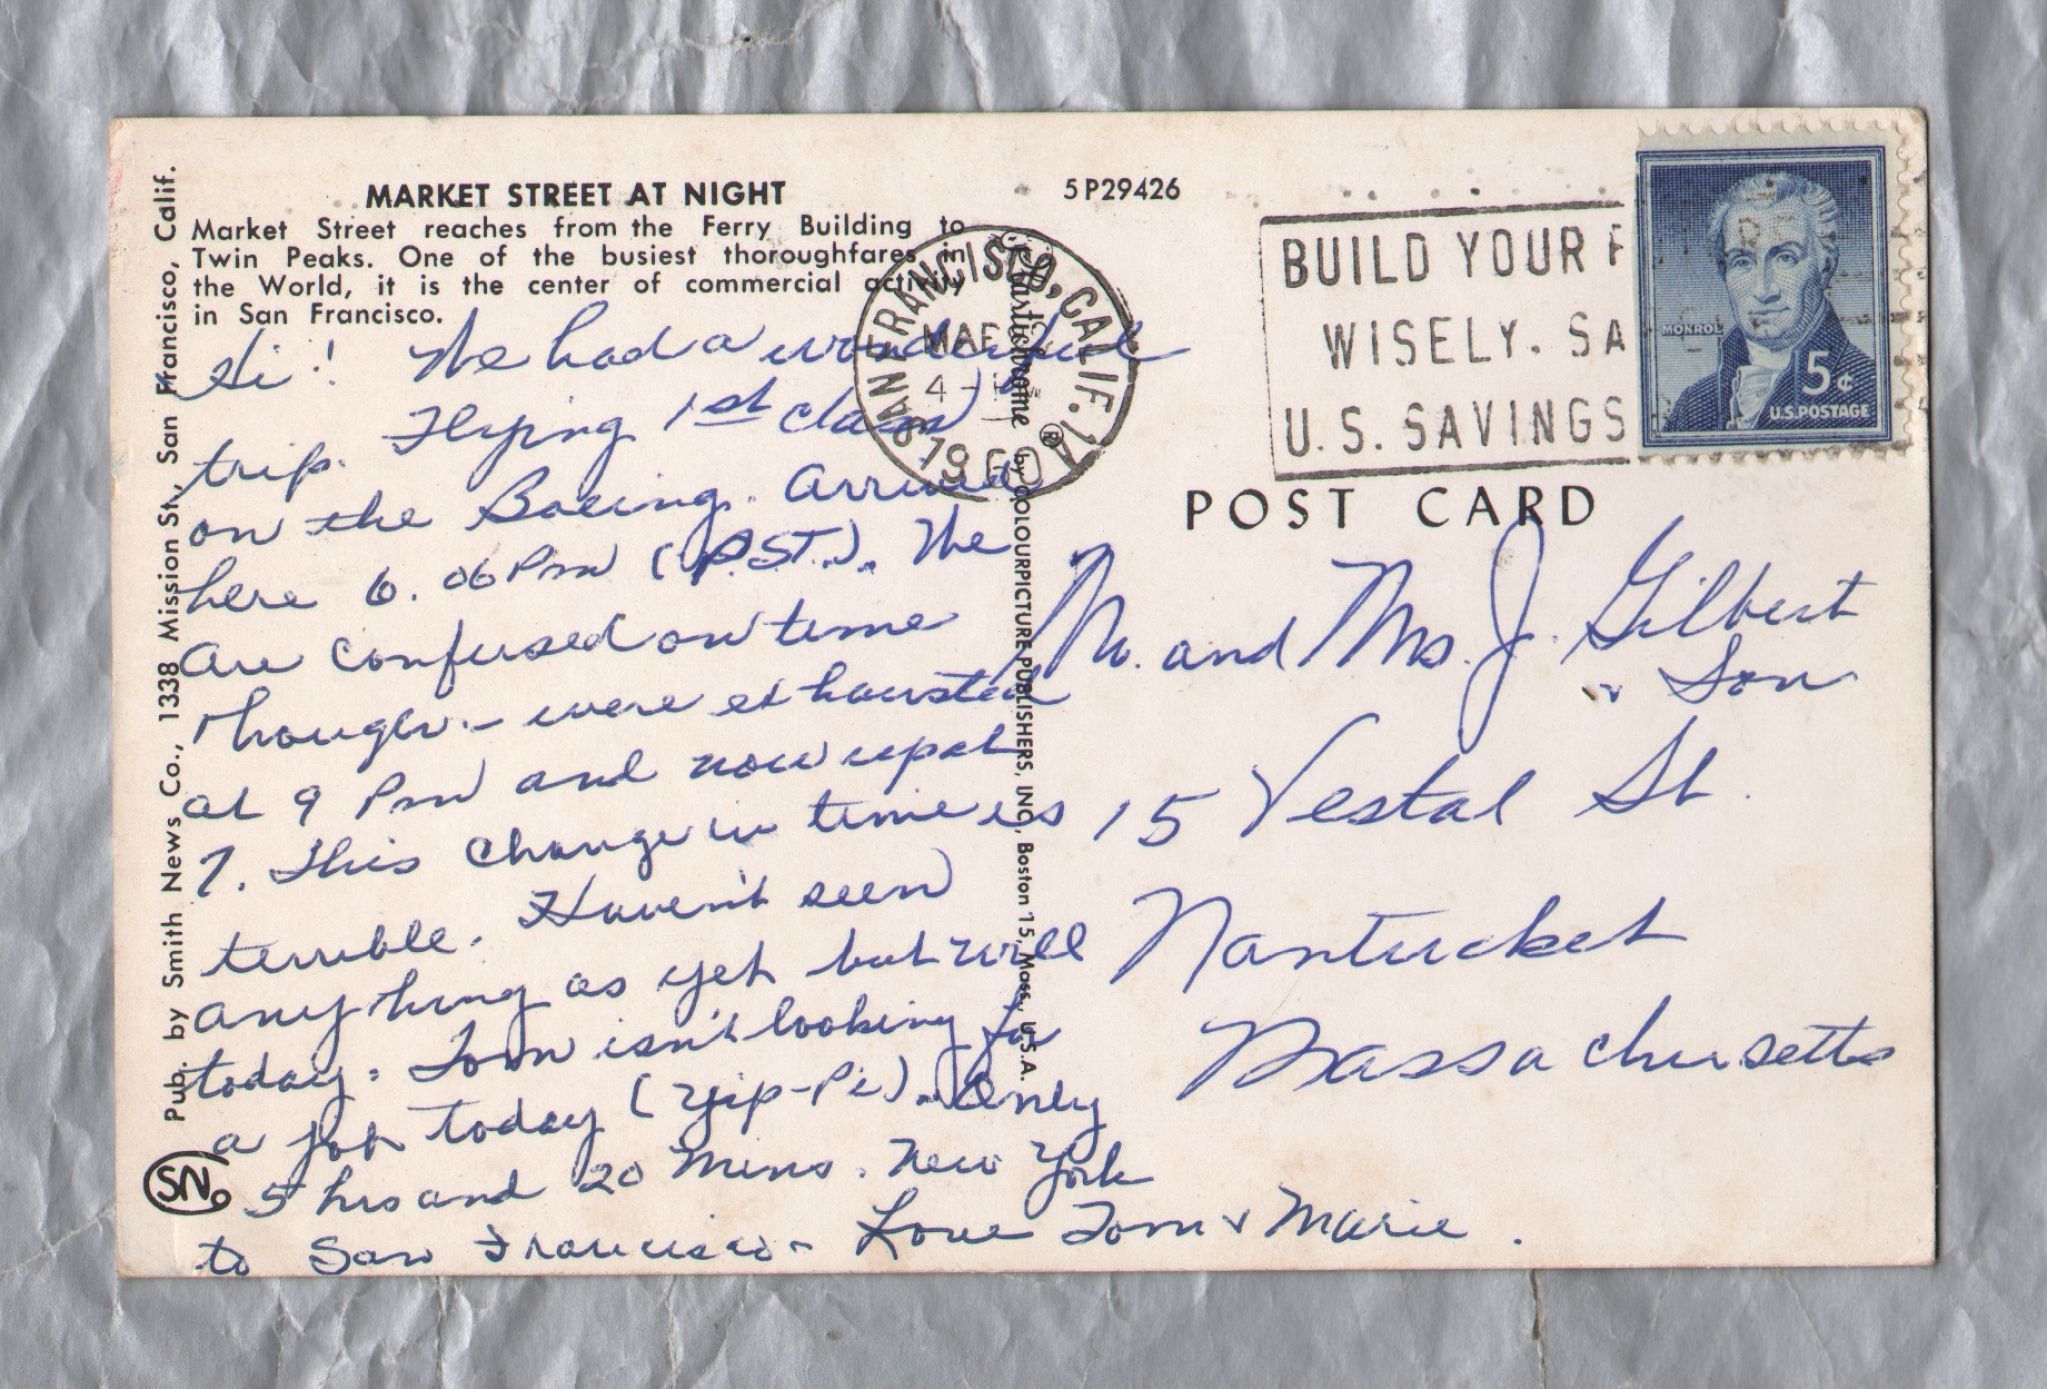 MARKET STREET AT NIGHT
Market Street reaches from the Ferry Building to
Twin Peaks. One of the busiest thoroughfares in
the World, it is the center of commercial activity
in San Francisco.
Pub. by Smith News Co., 1338 Mission St., San Francisco, Calif.
SN
Hi! We had a wonderful
trip. Flying 1st class
on the Boeing. Arrived
here 6.06 Pm (P.S.T.). We
are confused on time
though - were exhausted
at 9 Pm and now up at
7. This change in time is
terrible. Haven't seen
anything as yet but will
today. Tom isn't looking for
a job today (Yip-Pi). Only
5 hrs and 20 mins. New York
to San Francisco - Love Tom & Marie.
5P29426
SAN FRANCISCO, CALIF.
Plastichrome ® by COLOURPICTURE PUBLISHERS, INC., Boston 15, Mass., U.S.A.
BUILD YOUR F
WISELY. SA
U.S. SAVINGS
MONROE
5¢
U.S. POSTAGE
POST CARD
Mr. and Mrs. J. Gilbert
& Son
15 Vestal St.
Nantucket
Massachusetts